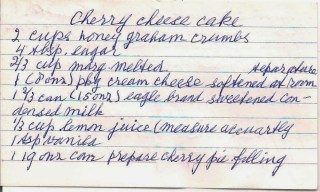 Cherry cheese cake
2 cups honey graham crumbs
4 tbsp. sugar
2/3 cup marg melted
1 (8 onz) pkg cream cheese softened at room
1 1/3 can (15 onz) eagle brand sweetened con-
densed milk
1/3 cup lemon juice (measure
1 tsp vanila
1 19 onz can prepare cherry pie filling